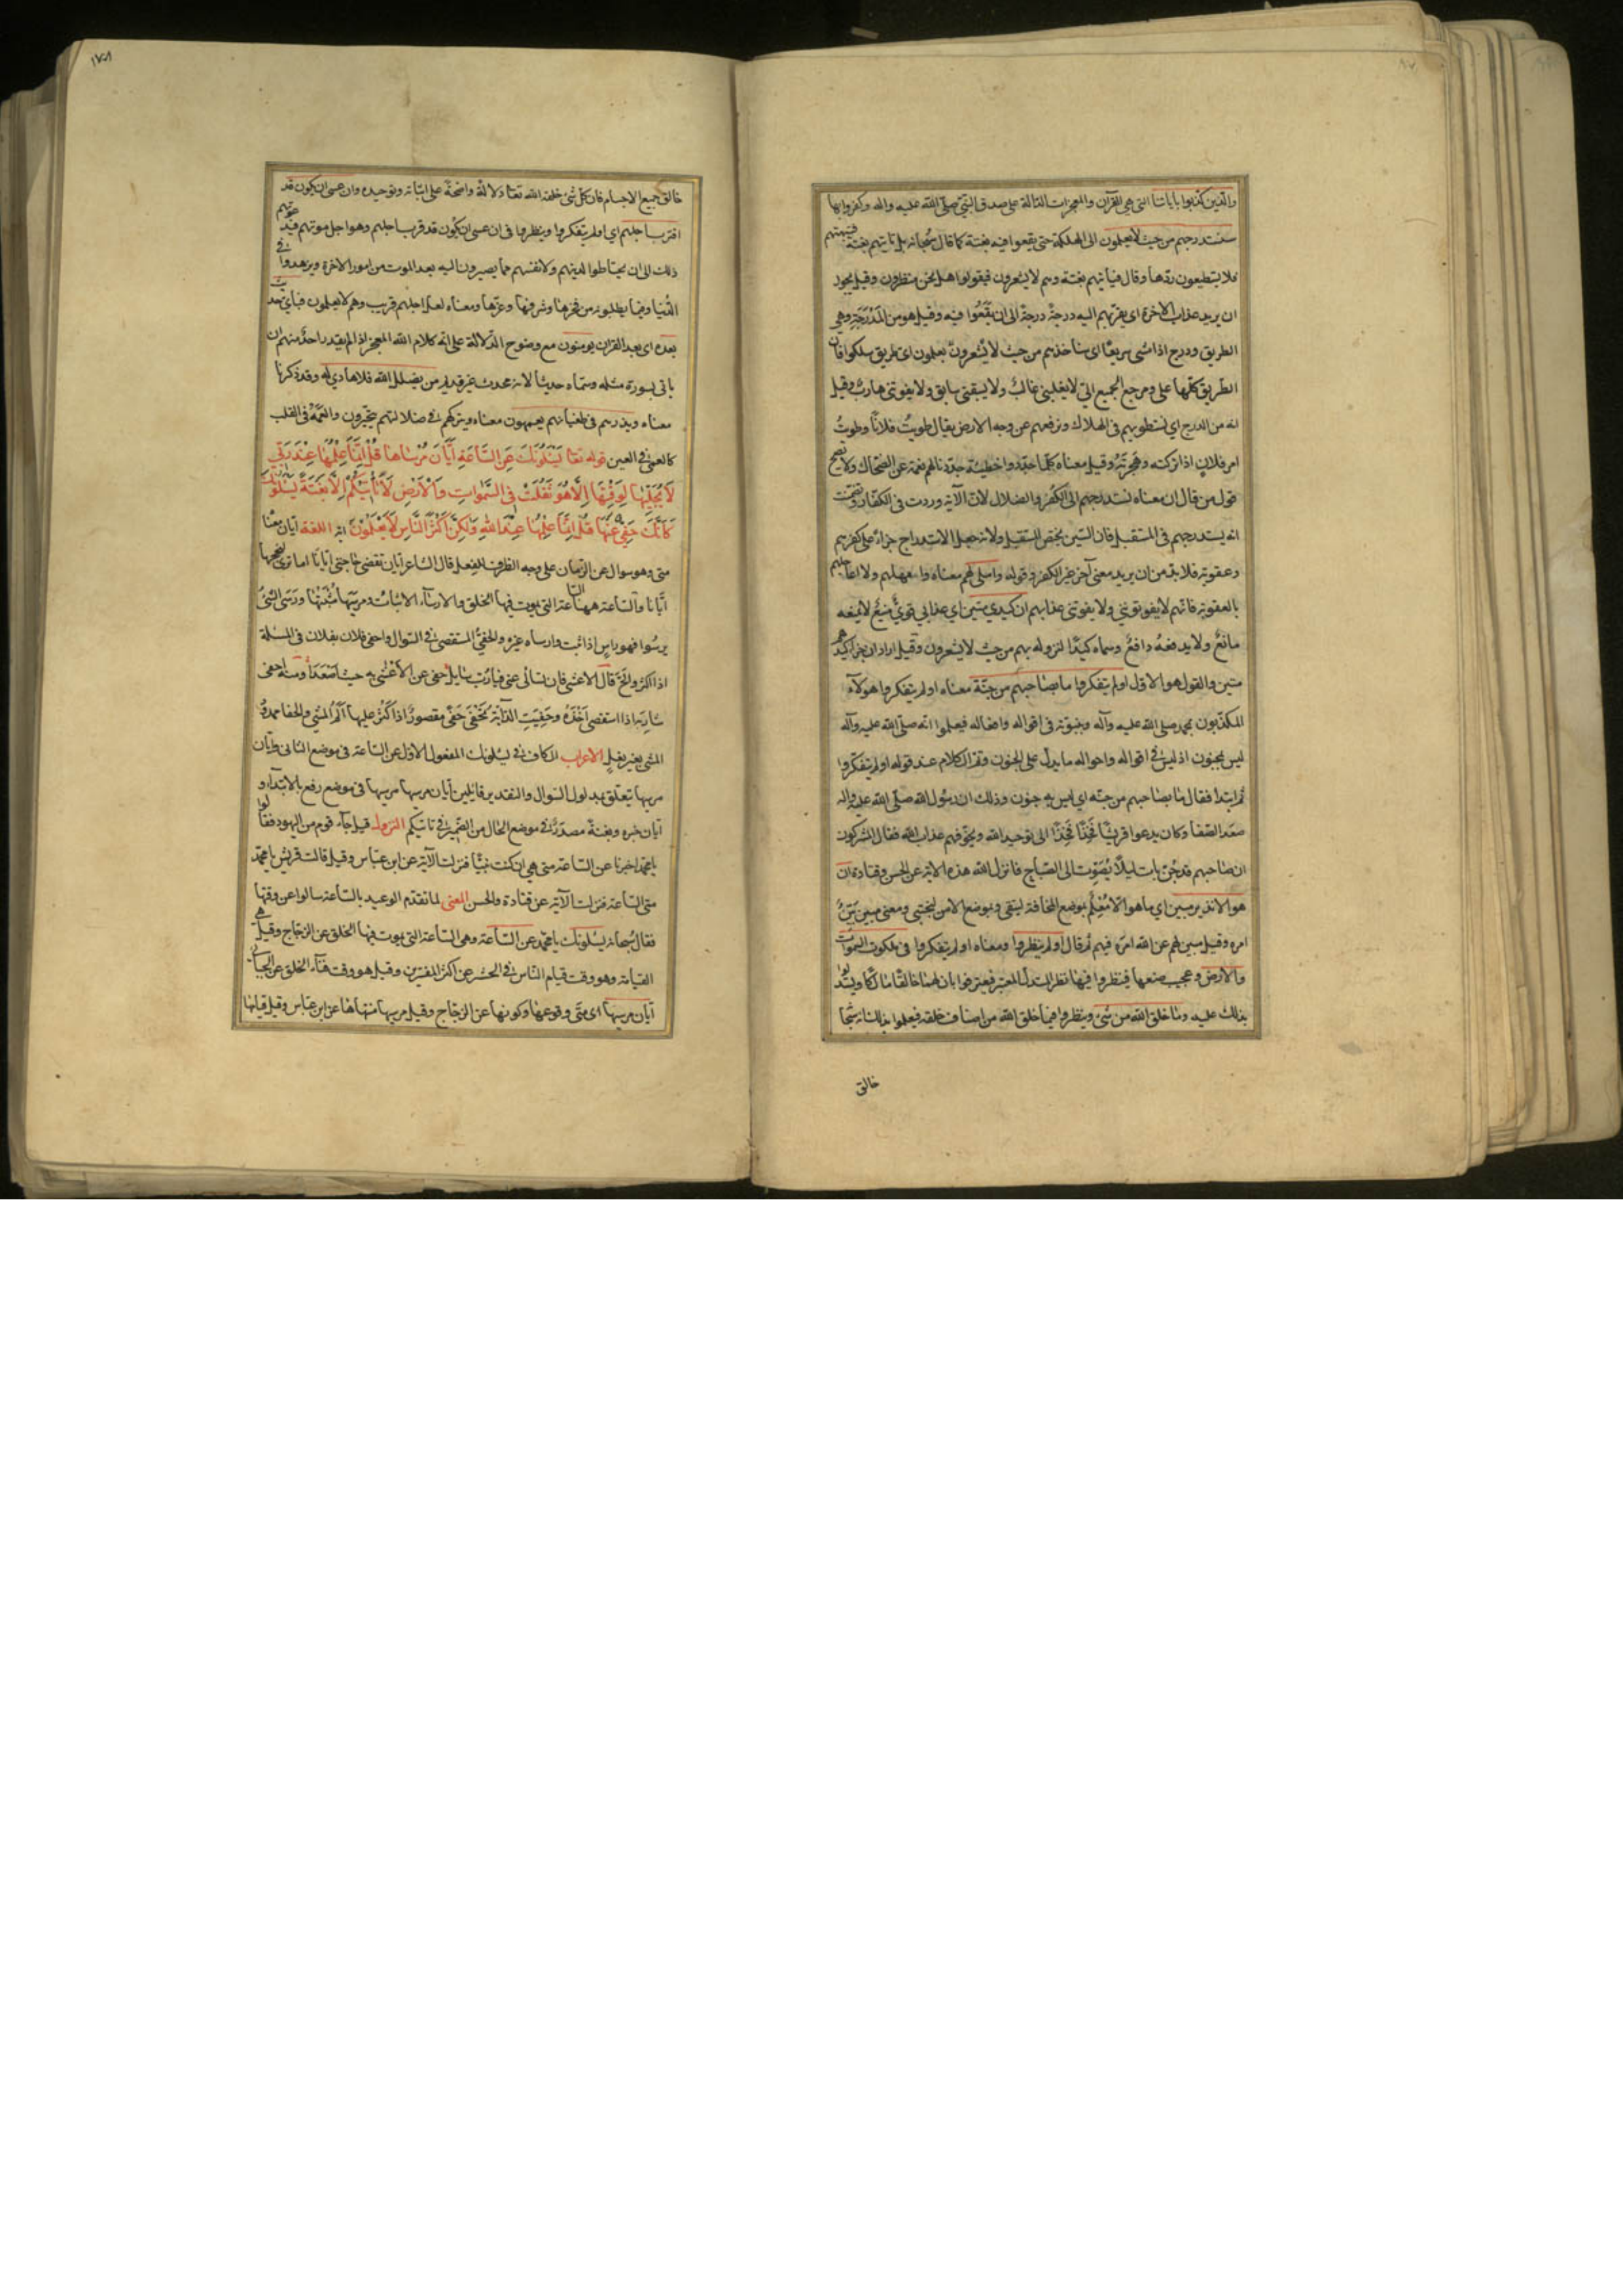 والذين كذبوا باياتنا التى هى القرآن والمعجزات الدالة على صدق النبى صلى الله عليه واله وكفروا بها
سنستدرجهم من حيث لا يعلمون الى الهلكة حتى يقعوا فيه بغتة كما قال سبحانه بل تاتيهم بغتة فتبهتهم
فلا يستطيعون ردها وقال فياتيهم بغتة وهم لا يشعرون فيقولوا هل نحن منظرون وقيل يجوز
ان يريد عذاب الاخرة اى نقربهم اليه درجة درجة الى ان يقعوا فيه وقيل هو من المدرجة وهى
الطريق ودرج اذا مشى سريعا اى سناخذهم من حيث لا يشعرون يعلمون اى طريق سلكوا فان
الطريق كلها على ومرجع الجميع الى لا يغلبنى غالب ولا يسبقنى سابق ولا يفوتنى هارب وقيل
انه من الدرج اي سنطويهم فى الهلاك ونرفعهم عن وجه الارض يقال طويت فلانا وطويت
امر فلان اذا تركته وهجرته وقيل معناه كلما جددوا خطيئة جددنا لهم نعمة عن الضحاك ولا يصح
قول من قال ان معناه نستدرجهم الى الكفر والضلال لان الآية وردت فى الكفار وتضمنت
انه يستدرجهم فى المستقبل فان السين يختص المستقبل ولانه جعل الاستدراج جزاء على كفرهم
وعقوبة فلا بد من ان يريد معنى آخر غير الكفر وقوله واملى لهم معناه وامهلهم ولا اعاجلهم
بالعقوبة فانهم لا يفوتونى ولا يفوتنى عذابهم ان كيدي متين اي عذابي قوي منيع لا يمنعه
مانع ولا يدفعه دافع وسماه كيدا لنزوله بهم من حيث لا يشعرون وقيل اراد ان جزاء كيدهم
متين والقول هو الاول اولم يتفكروا ما بصاحبهم من جنة معناه اولم يتفكروا هولآء
المكذبون بمحمد صلى الله عليه وآله وبنبوته فى اقواله وافعاله فيعلموا انه صلى الله عليه وآله
ليس بمجنون اذ ليس فى اقواله واحواله ما يدل على الجنون وتم الكلام عند قوله اولم يتفكروا
ثم ابتدا فقال ما بصاحبهم من جنه اي ليس به جنون وذلك ان رسول الله صلى الله عليه واله
صعد الصفا وكان يدعوا قريشا فخذا فخذا الى توحيد الله ويخوفهم عذاب الله فقال المشركون
ان صاحبهم قد جن بات ليلا يصوت الى الصباح فانزل الله هذه الاية عن الحسن وقتادة ان
هو الا نذير مبين اي ما هو الا معلم بموضع المخافة ليتقى وبموضع الامن ليجتبى ومعنى مبين بين
امره وقيل مبين لهم عن الله امره فيهم ثم قال اولم ينظروا ومعناه اولم يتفكروا فى ملكوت السموات
والارض وعجيب صنعها فينظروا فيها نظر المستدل المعتبر فيعترفوا بان لهنا خالقا مالكا ويستدلوا
بذلك عليه وما خلق الله من شئ وينظروا فيما خلق الله من اصناف خلقه فيعلموا بذلك انه سبحا
خالق
١٧٨
خالق جميع الاجسام فان كل شئ خلقه الله تعا دلالة واضحة على اثباته وتوحيده وان عسى ان يكون قد
اقترب اجلهم اي اولم يتفكروا وينظروا فى ان عسى ان يكون قد قرب اجلهم وهو اجل موتهم فيدعوهم
ذلك الى ان يحتاطوا لدينهم ولانفسهم مما يصيرون اليه بعد الموت من امور الاخرة ويزهدوا فى
الدنيا وفيما يطلبونه من فخرها وشرفها وعزها ومعناه لعل اجلهم قريب وهم لا يعلمون فباي حديث
بعده اى بعد القران يومنون مع وضوح الدلالة على انه كلام الله المعجز اذ لم يقدر احد منهم ان
ياتى بسورة مثله وسماه حديثا لانه محدث غير قديم من يضلل الله فلا هادي له وقد ذكرنا
معناه ويذرهم فى طغيانهم يعمهون معناه ويتركهم فى ضلالتهم يتحيرون والعمه فى القلب
كالعمى فى العين قوله تعا يَسْئَلُونَكَ عَنِ السَّاعَةِ اَيَّانَ مُرْسٰاها قُلْ اِنَّمَا عِلْمُهَا عِنْدَ رَبّي
لاَ يُجَلِّيهَا لِوَقْتِهَا اِلاَّ هُوَ ثَقُلَتْ فِي السَّمٰوٰاتِ وَالْاَرْضِ لاَ تَأْتِيكُمْ اِلاَّ بَغْتَةً يَسْئَلُونَكَ
كَاَنَّكَ حَفِيٌّ عَنْهَا قُلْ اِنَّمَا عِلْمُهَا عِنْدَ اللهِ وَلٰكِنَّ اَكْثَرَ النَّاسِ لاَ يَعْلَمُونَ آية اللغة ايان معنا
متى وهو سوال عن الزمان على وجه الظرف للفعل قال الشاعر ايان تقضى حاجتى ايانا اما ترى لنجحها
ابانا والساعة ههنا الساعة التى يموت فيها الخلق والارساء الاثبات ومرسيها مثبتها ورسى الشئ
يرسوا فهو راس اذا ثبت وارساه غيره والحفي المستقصى فى السوال واحفى فلان بفلان فى المسئلة
اذا اكثر والح قال الاعشى فان تسالى عنى فيا رب سايل حفى عن الاعشى به حيث اصعدا ومنه احفى
شاربه اذا استقصى اخذه وحفيت الدابة تحفى حفى مقصورا اذا كثر عليها الم المشي والحفا ممدود
المشى بغير نعل الاعراب الكاف فى يسئلونك المفعول الاول عن الساعة فى موضع الثانى وايان
مرسيها يتعلق بمدلول السوال والتقدير قايلين ايان مرسيها مرسيها فى موضع رفع بالابتداء و
ايان خبره وبغتة مصدر فى موضع الحال من الضمير فى تاتيكم النزول قيل جاء قوم من اليهود فقالوا
يا محمد اخبرنا عن الساعة متى هي ان كنت نبيا فنزلت الآية عن ابن عباس وقيل قالت قريش يا محمد
متى الساعة فنزلت الآية عن قتادة والحسن المعنى لما تقدم الوعيد بالساعة سالوا عن وقتها
فقال سبحانه يسئلونك يا محمد عن الساعة وهى الساعة التى يموت فيها الخلق عن الزجاج وقيل هى
القيامة وهو وقت قيام الناس فى الحشر عن اكثر المفسرين وقيل هو وقت فناء الخلق عن الجبائى
ايان مرسيها اى متى وقوعها وكونها عن الزجاج وقيل مرسيها منتهاها عن ابن عباس وقيل قيامها